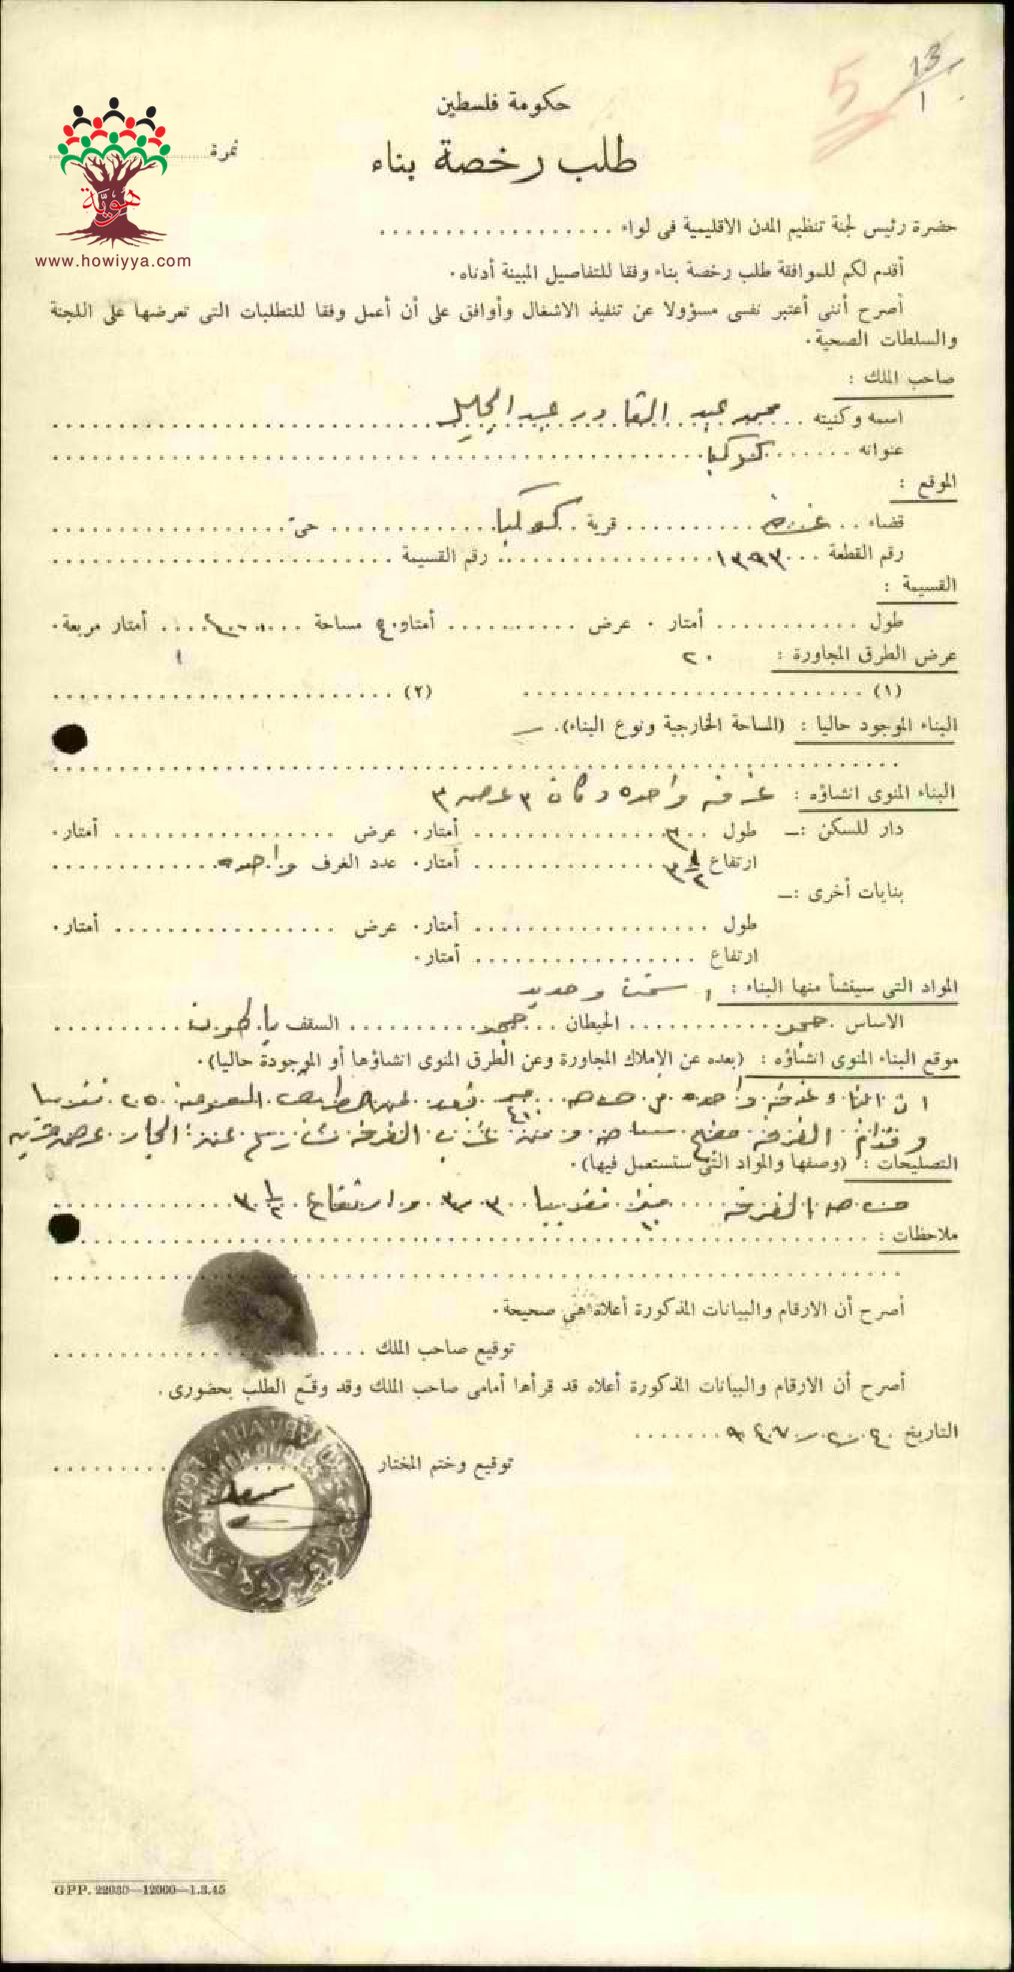 13
1
5
حكومة فلسطين
طلب رخصة بناء
نمرة
هوية
www.howiyya.com
حضرة رئيس لجنة تنظيم المدن الاقليمية فى لواء
أقدم لكم للموافقة طلب رخصة بناء وفقا للتفاصيل المبينة أدناه.
أصرح أننى أعتبر نفسى مسؤولا عن تنفيذ الاشغال وأوافق على أن أعمل وفقا للمتطلبات التى تعرضها على اللجنة
والسلطات الصحية.
صاحب الملك :
اسمه وكنيته محمد عبد القادر عبد الجليل
عنوانه كوكبا
الموقع :
قضاء غزة قرية كوكبا حىّ
رقم القطعة ١٣٩٣ رقم القسيمة
القسيمة :
طول أمتار . عرض أمتار ٤٠ مساحة أمتار مربعة.
عرض الطرق المجاورة : ٢٠
(١) (٢)
البناء الموجود حاليا : (المساحة الخارجية ونوع البناء).
البناء المنوى انشاؤه : غرفه واحده ٣ عرض ٣
دار للسكن :— طول ٣ أمتار. عرض أمتار.
ارتفاع ٣ ١/٢ أمتار. عدد الغرف واحده
بنايات أخرى :—
طول أمتار. عرض أمتار.
ارتفاع أمتار.
المواد التى سينشأ منها البناء : سمنت وحديد
الاساس حجر الحيطان حجر السقف باطون
موقع البناء المنوى انشاؤه : (بعده عن الاملاك المجاورة وعن الطرق المنوى انشاؤها أو الموجودة حاليا).
ان البناء غرفه واحده تبعد عن الطريق العموميه ٢٥٠ تقريبا
الغرفه غرب الغرفه شارع عند الجار
التصليحات : (وصفها والمواد التى ستستعمل فيها).
الغرفه تقريبا ٣ وارتفاع ٣ ١/٢
ملاحظات :
أصرح أن الارقام والبيانات المذكورة أعلاه هى صحيحة.
توقيع صاحب الملك
أصرح أن الارقام والبيانات المذكورة أعلاه قد قرأها أمامى صاحب الملك وقد وقّع الطلب بحضورى.
التاريخ
توقيع وختم المختار
GAZA
GPP. 22030—12000—1.3.45